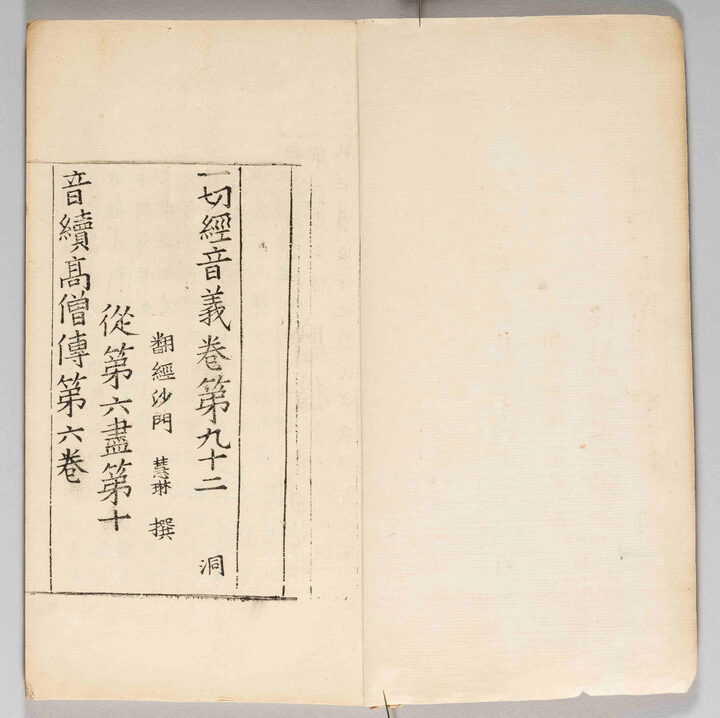 一切經音義卷第九十二 洞
翻經沙門 慧琳 撰
從第六盡第十
音續高僧傳第六卷